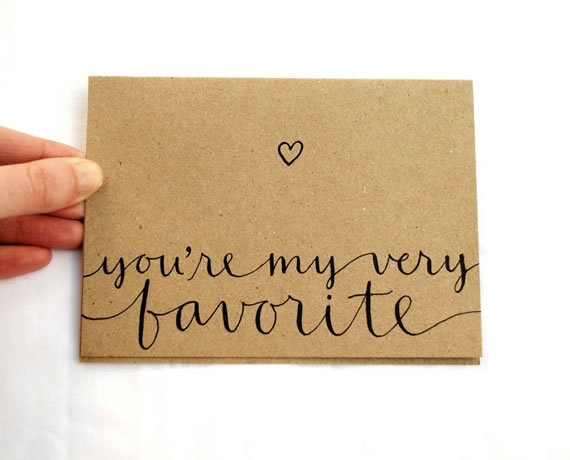 you're my very
favorite